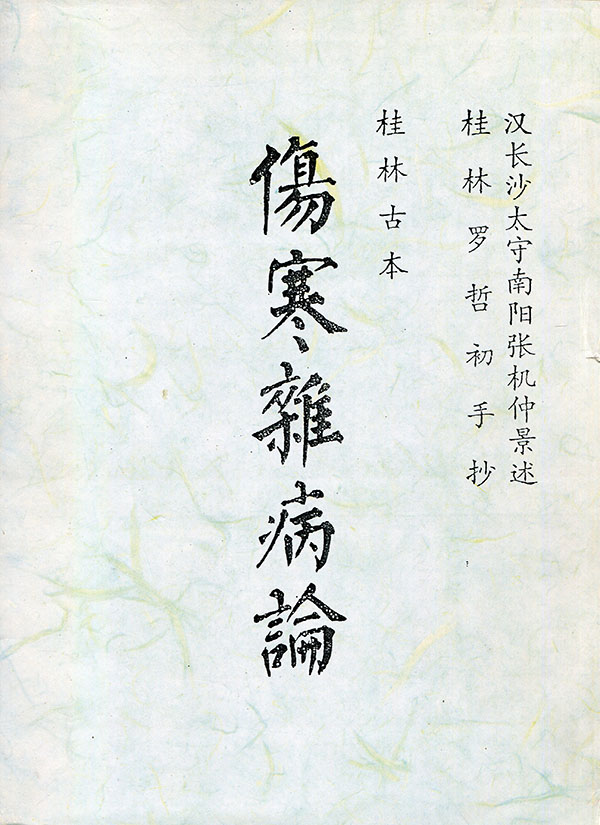 汉长沙太守南阳张机仲景述
桂林罗哲初手抄
桂林古本
傷寒雜病論